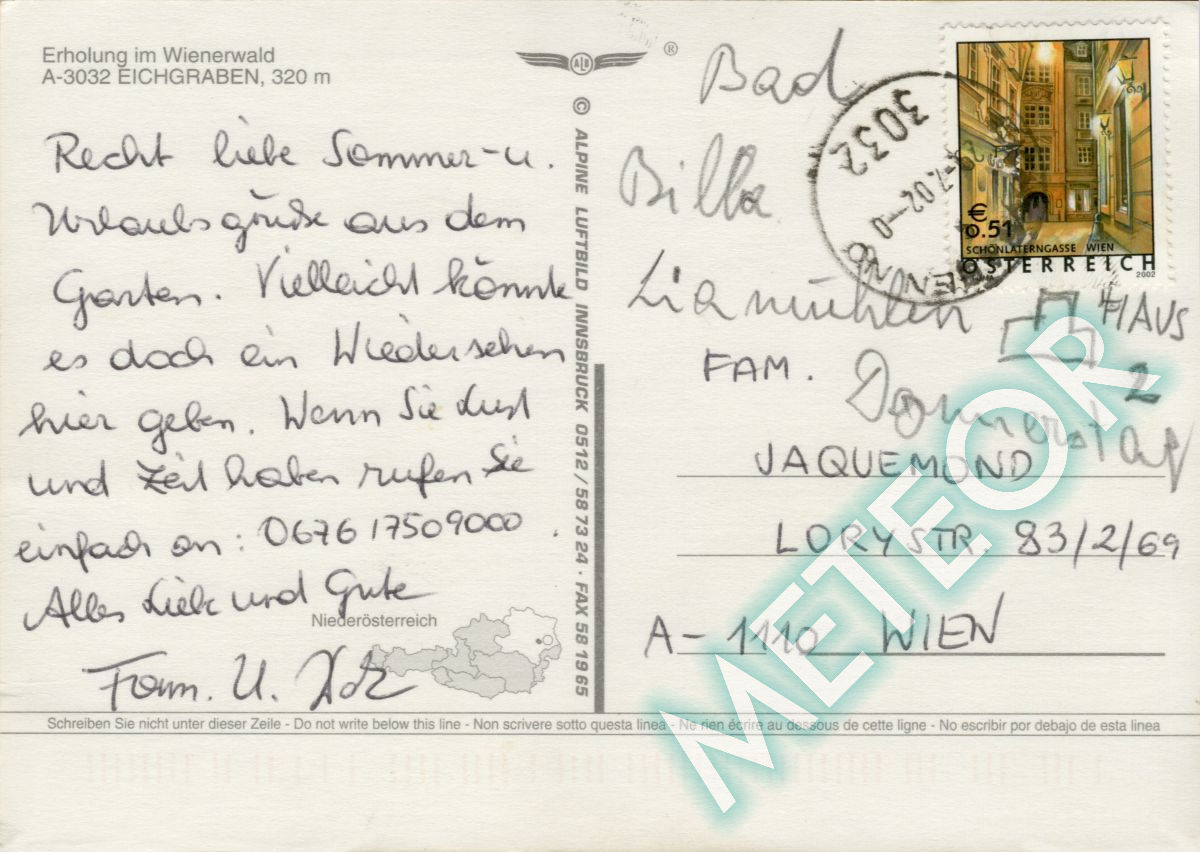 Erholung im Wienerwald
A-3032 EICHGRABEN, 320 m
Recht liebe Sommer-u.
Urlaubsgrüße aus dem
Garten. Vielleicht könnte
es doch ein Wiedersehen
hier geben. Wenn Sie Lust
und Zeit haben rufen Sie
einfach an: 0676 17509000.
Alles Liebe und Gute
Fam. U.
Niederösterreich
ALB
®
© ALPINE LUFTBILD INNSBRUCK 0512 / 58 73 24 · FAX 58 19 65
Bad
Billa
HAUS
2
FAM.
JAQUEMOND
LORYSTR. 83/2/69
A-1110 WIEN
3032
€ 0.51
SCHÖNLATERNGASSE WIEN
ÖSTERREICH
2002
METEOR
Schreiben Sie nicht unter dieser Zeile - Do not write below this line - Non scrivere sotto questa linea - Ne rien écrire au dessous de cette ligne - No escribir por debajo de esta linea